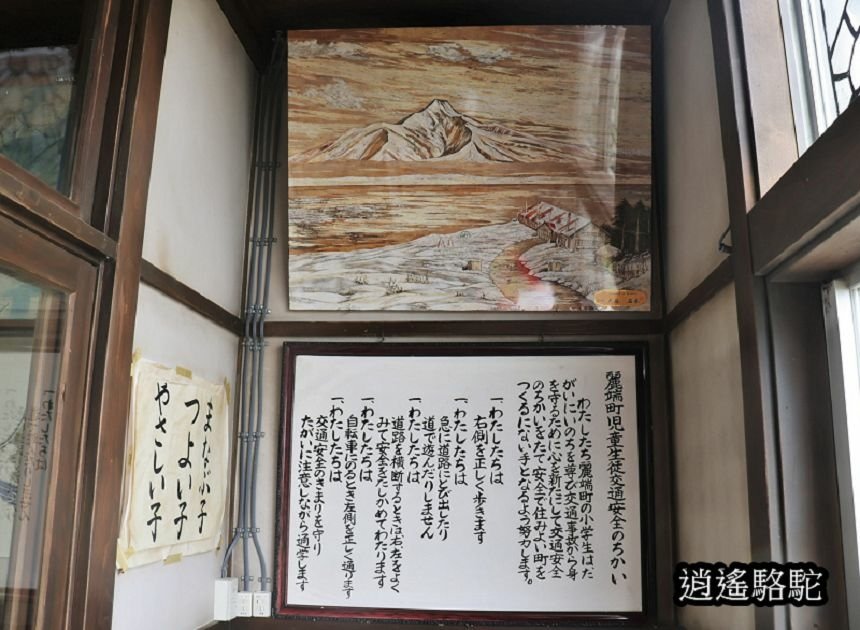 麗端町児童生徒交通安全のちかい
わたしたち麗端町の小学生は、た
がいにいのちを尊び交通事故から身
を守るために心を新たにして交通安全
のちかいをたて、安全で住みよい町を
つくるにない手となるよう努力します。
一、わたしたちは
右側を正しく歩きます
一、わたしたちは
急に道路にとび出したり
道で遊んだりしません
一、わたしたちは
道路を横断するときは右左をよく
みて安全をたしかめてわたります
一、わたしたちは
自転車にのるとき左側を正しく通ります
一、わたしたちは
交通安全のきまりを守り
たがいに注意しながら通学します
まなぶ子
つよい子
やさしい子
逍遙駱駝